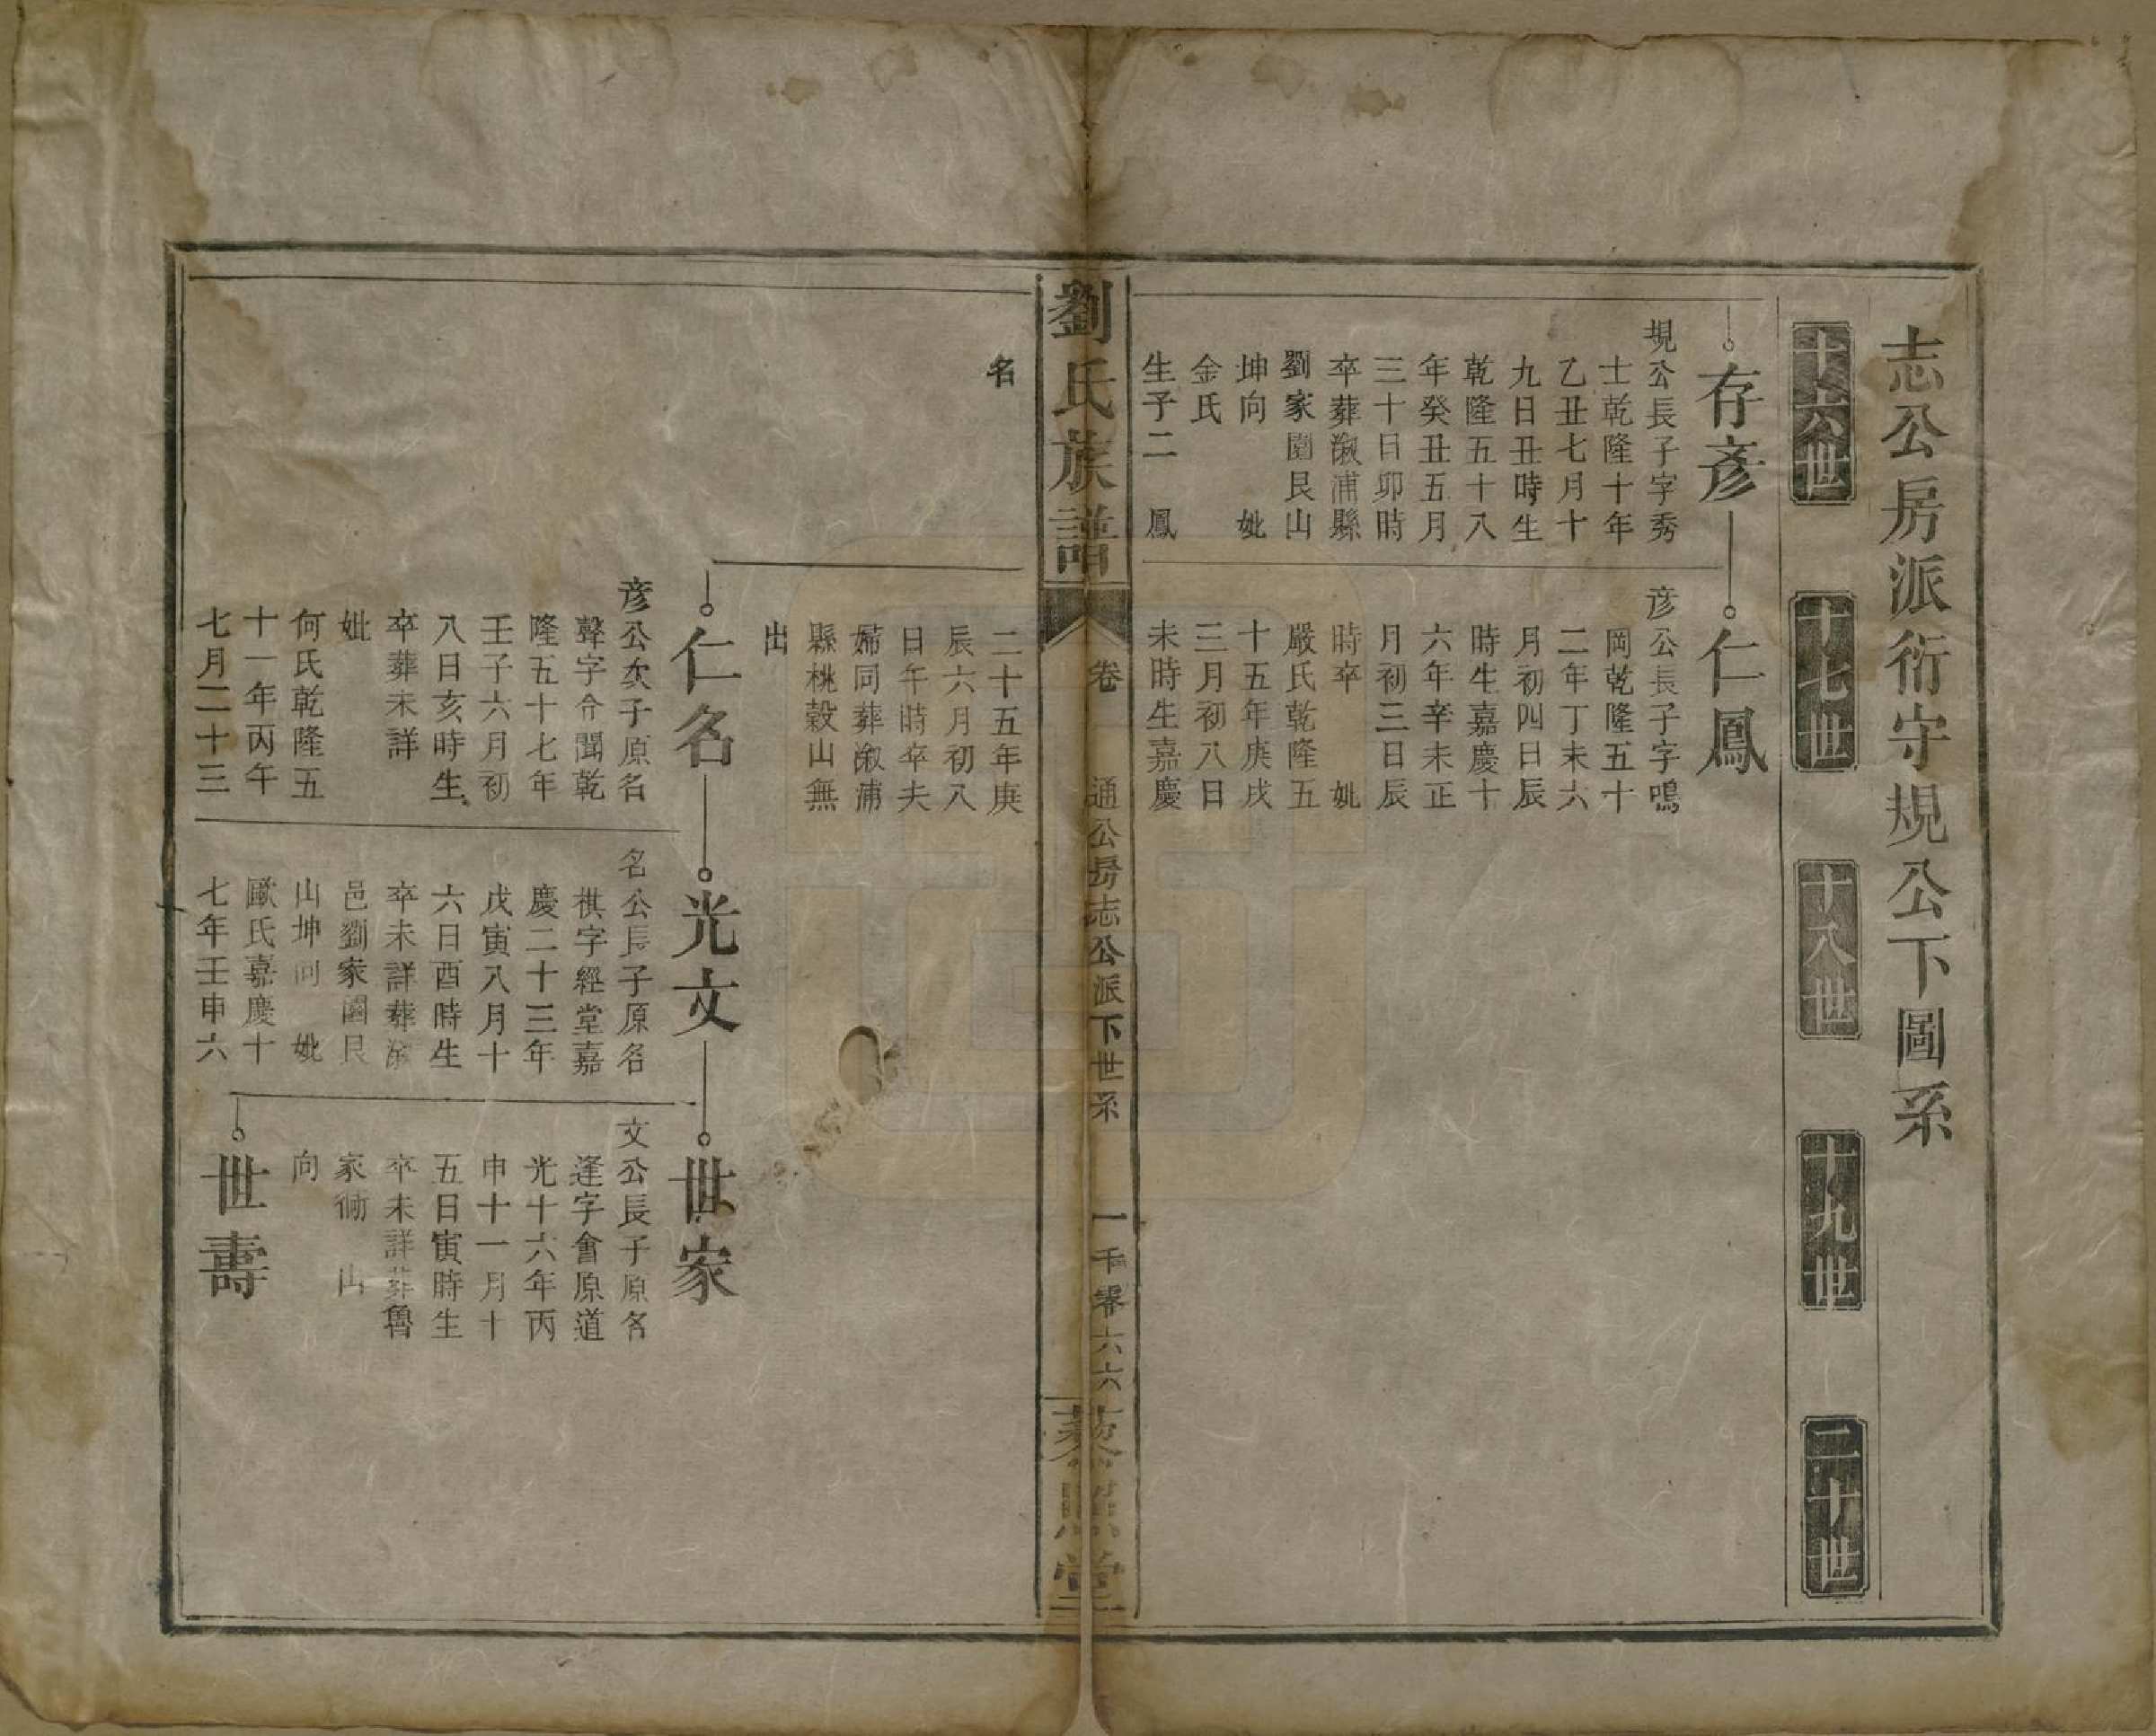 志公房派衍守規公下圖系
十六世
十七世
十八世
十九世
二十世
存彥
規公長子字秀
士乾隆十年
乙丑七月十
九日丑時生
乾隆五十八
年癸丑五月
三十日卯時
卒葬溆浦縣
劉家園艮山
坤向 妣
金氏
生子二 鳳
仁鳳
彥公長子字鳴
岡乾隆五十
二年丁未六
月初四日辰
時生嘉慶十
六年辛未正
月初三日辰
時卒 妣
嚴氏乾隆五
十五年庚戌
三月初八日
未時生嘉慶
劉氏族譜
卷
通公房志公派下世系
一千零六六
藜照堂
名
二十五年庚
辰六月初八
日午時卒夫
婦同葬溆浦
縣桃穀山無
出
仁名
彥公次子原名
聲字令聞乾
隆五十七年
壬子六月初
八日亥時生
卒葬未詳
妣
何氏乾隆五
十一年丙午
七月二十三
光文
名公長子原名
棋字經堂嘉
慶二十三年
戊寅八月十
六日酉時生
卒未詳葬溆
邑劉家園艮
山坤向 妣
歐氏嘉慶十
七年壬申六
世家
文公長子原名
逢字會原道
光十六年丙
申十一月十
五日寅時生
卒未詳葬魯
家衕 山
向
世壽